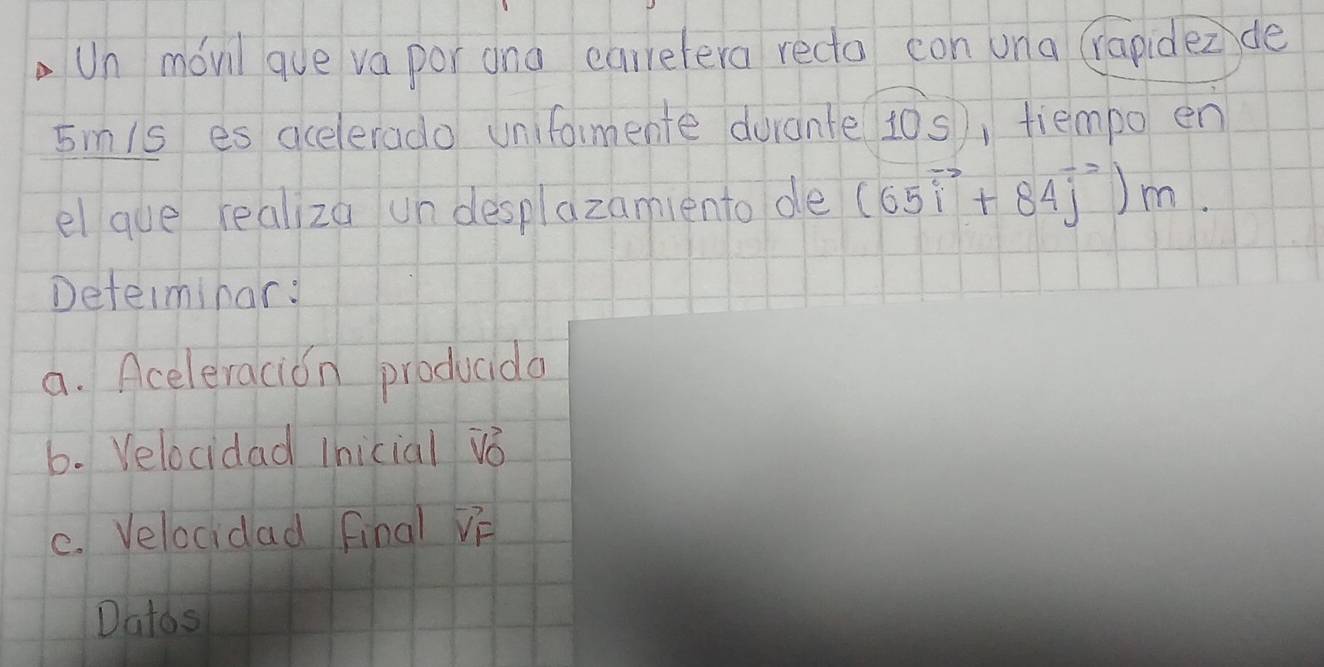 Un móvil que va por una carretera recta con una rapidez de
5m/s es acelerado uniformente durante 10s, tiempo en
el que realiza un desplazamiento de (65i⃗ + 84j⃗)m.
Determinar:
a. Aceleración producida
b. Velocidad inicial V⃗o
c. Velocidad final V⃗F
Datos